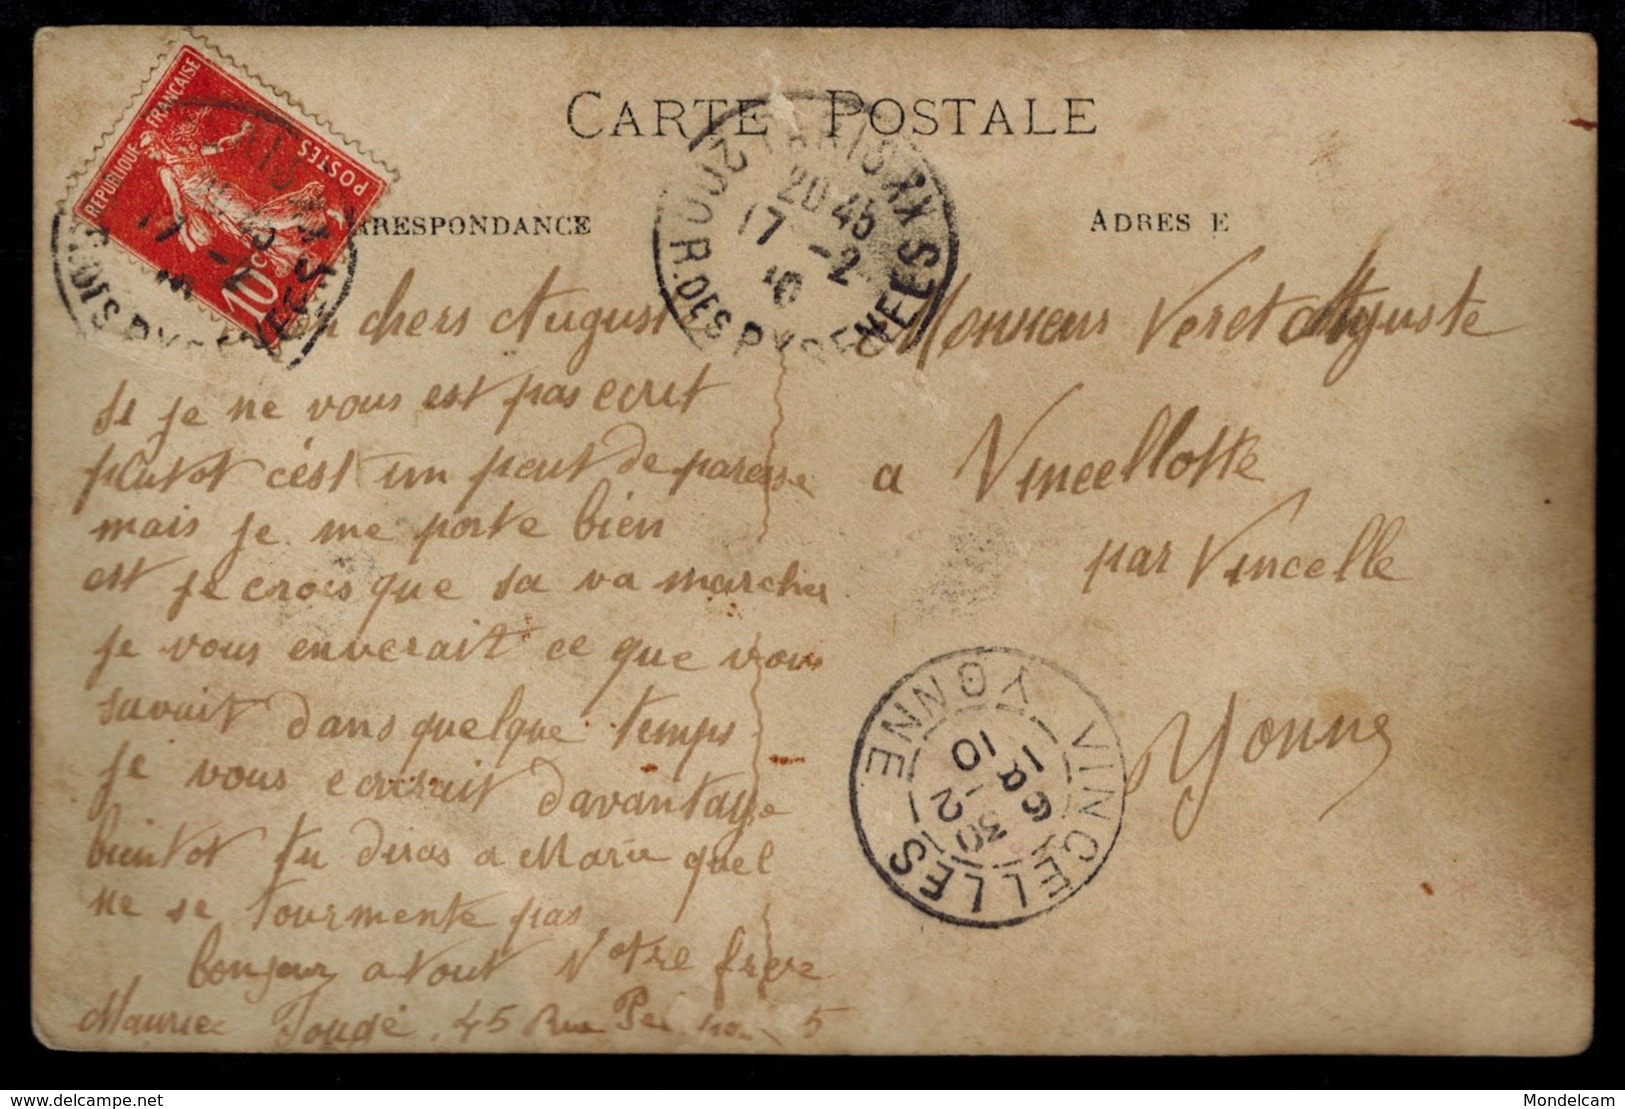 CARTE POSTALE
RRESPONDANCE
ADRES E
REPUBLIQUE FRANÇAISE
POSTES
10 c
17 -2
R. DES PYRENEES
20 45
17 -2
10
R. DES PYRENEES
chers August
Si je ne vous est pas ecrit
plutot c'est un peut de paresse
mais je me porte bien
est je crois que sa va marcher
je vous enverait ce que vous
savait dans quelque temps
je vous ecrirait davantage
bientot tu diras a Maria quel
ne se tourmente pas
bonjour a tout Votre frere
Maurice 45 Rue 5
Monsieur Veret Auguste
a Vincellotte
par Vincelle
Yonne
VINCELLES YONNE
6 30
-2
10
Mondelcam